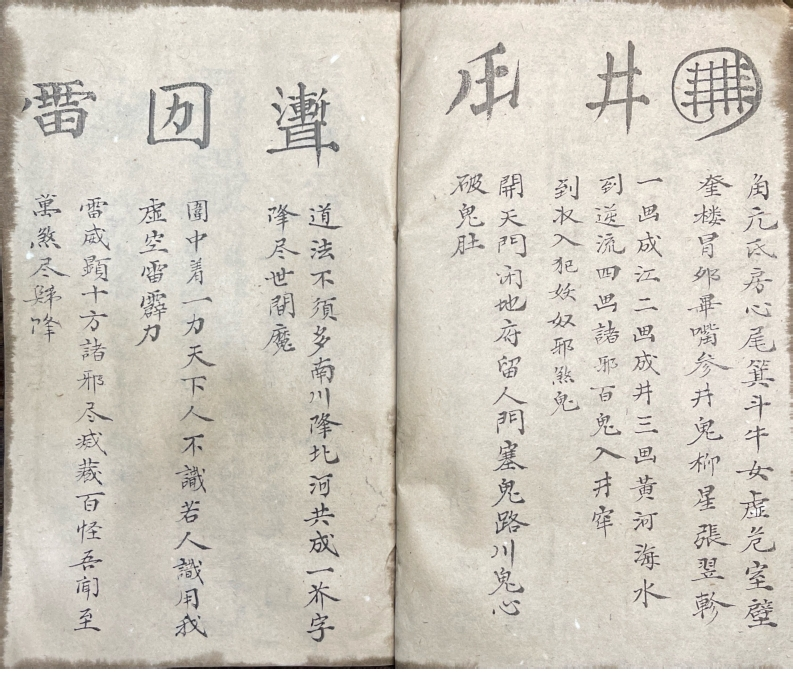 井
角亢氐房心尾箕斗牛女虚危室壁
奎楼冒卯畢嘴参井鬼柳星張翌軫
一畫成江二畫成井三畫黄河海水
到逆流四畫諸邪百鬼入井牢
到入犯妖奴邪煞鬼
開天門闭地府留人門塞鬼路川鬼心
破鬼肚
囚 雷
道法不須多南川降北河共成一字
降尽世間魔
圍中着一力天下人不識若人識用我
虚空雷霹力
雷威顕十方諸邪尽滅蔵百怪吾闻至
萬煞尽歸降